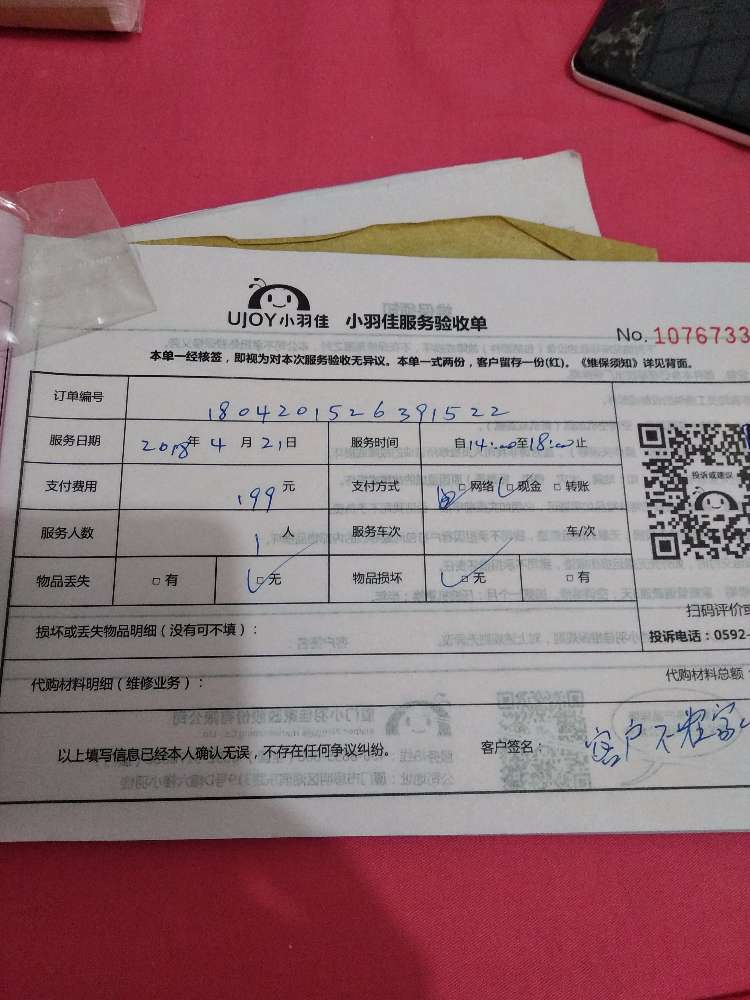 UJOY小羽佳 小羽佳服务验收单
No. 1076733
本单一经核签，即视为对本次服务验收无异议。本单一式两份，客户留存一份(红)。《维保须知》详见背面。
订单编号 1804201526391522
服务日期 2018年 4 月 21 日 服务时间 自14:00至18:00止
投诉或建议
支付费用 199 元 支付方式 □ 网络 □ 现金 □ 转账
服务人数 1 人 服务车次 车/次
物品丢失 □ 有 □ 无 物品损坏 □ 无 □ 有
扫码评价或
损坏或丢失物品明细（没有可不填）：
投诉电话：0592-
代购材料明细（维修业务）：
代购材料总额：
以上填写信息已经本人确认无误，不存在任何争议纠纷。 客户签名： 客户不在家